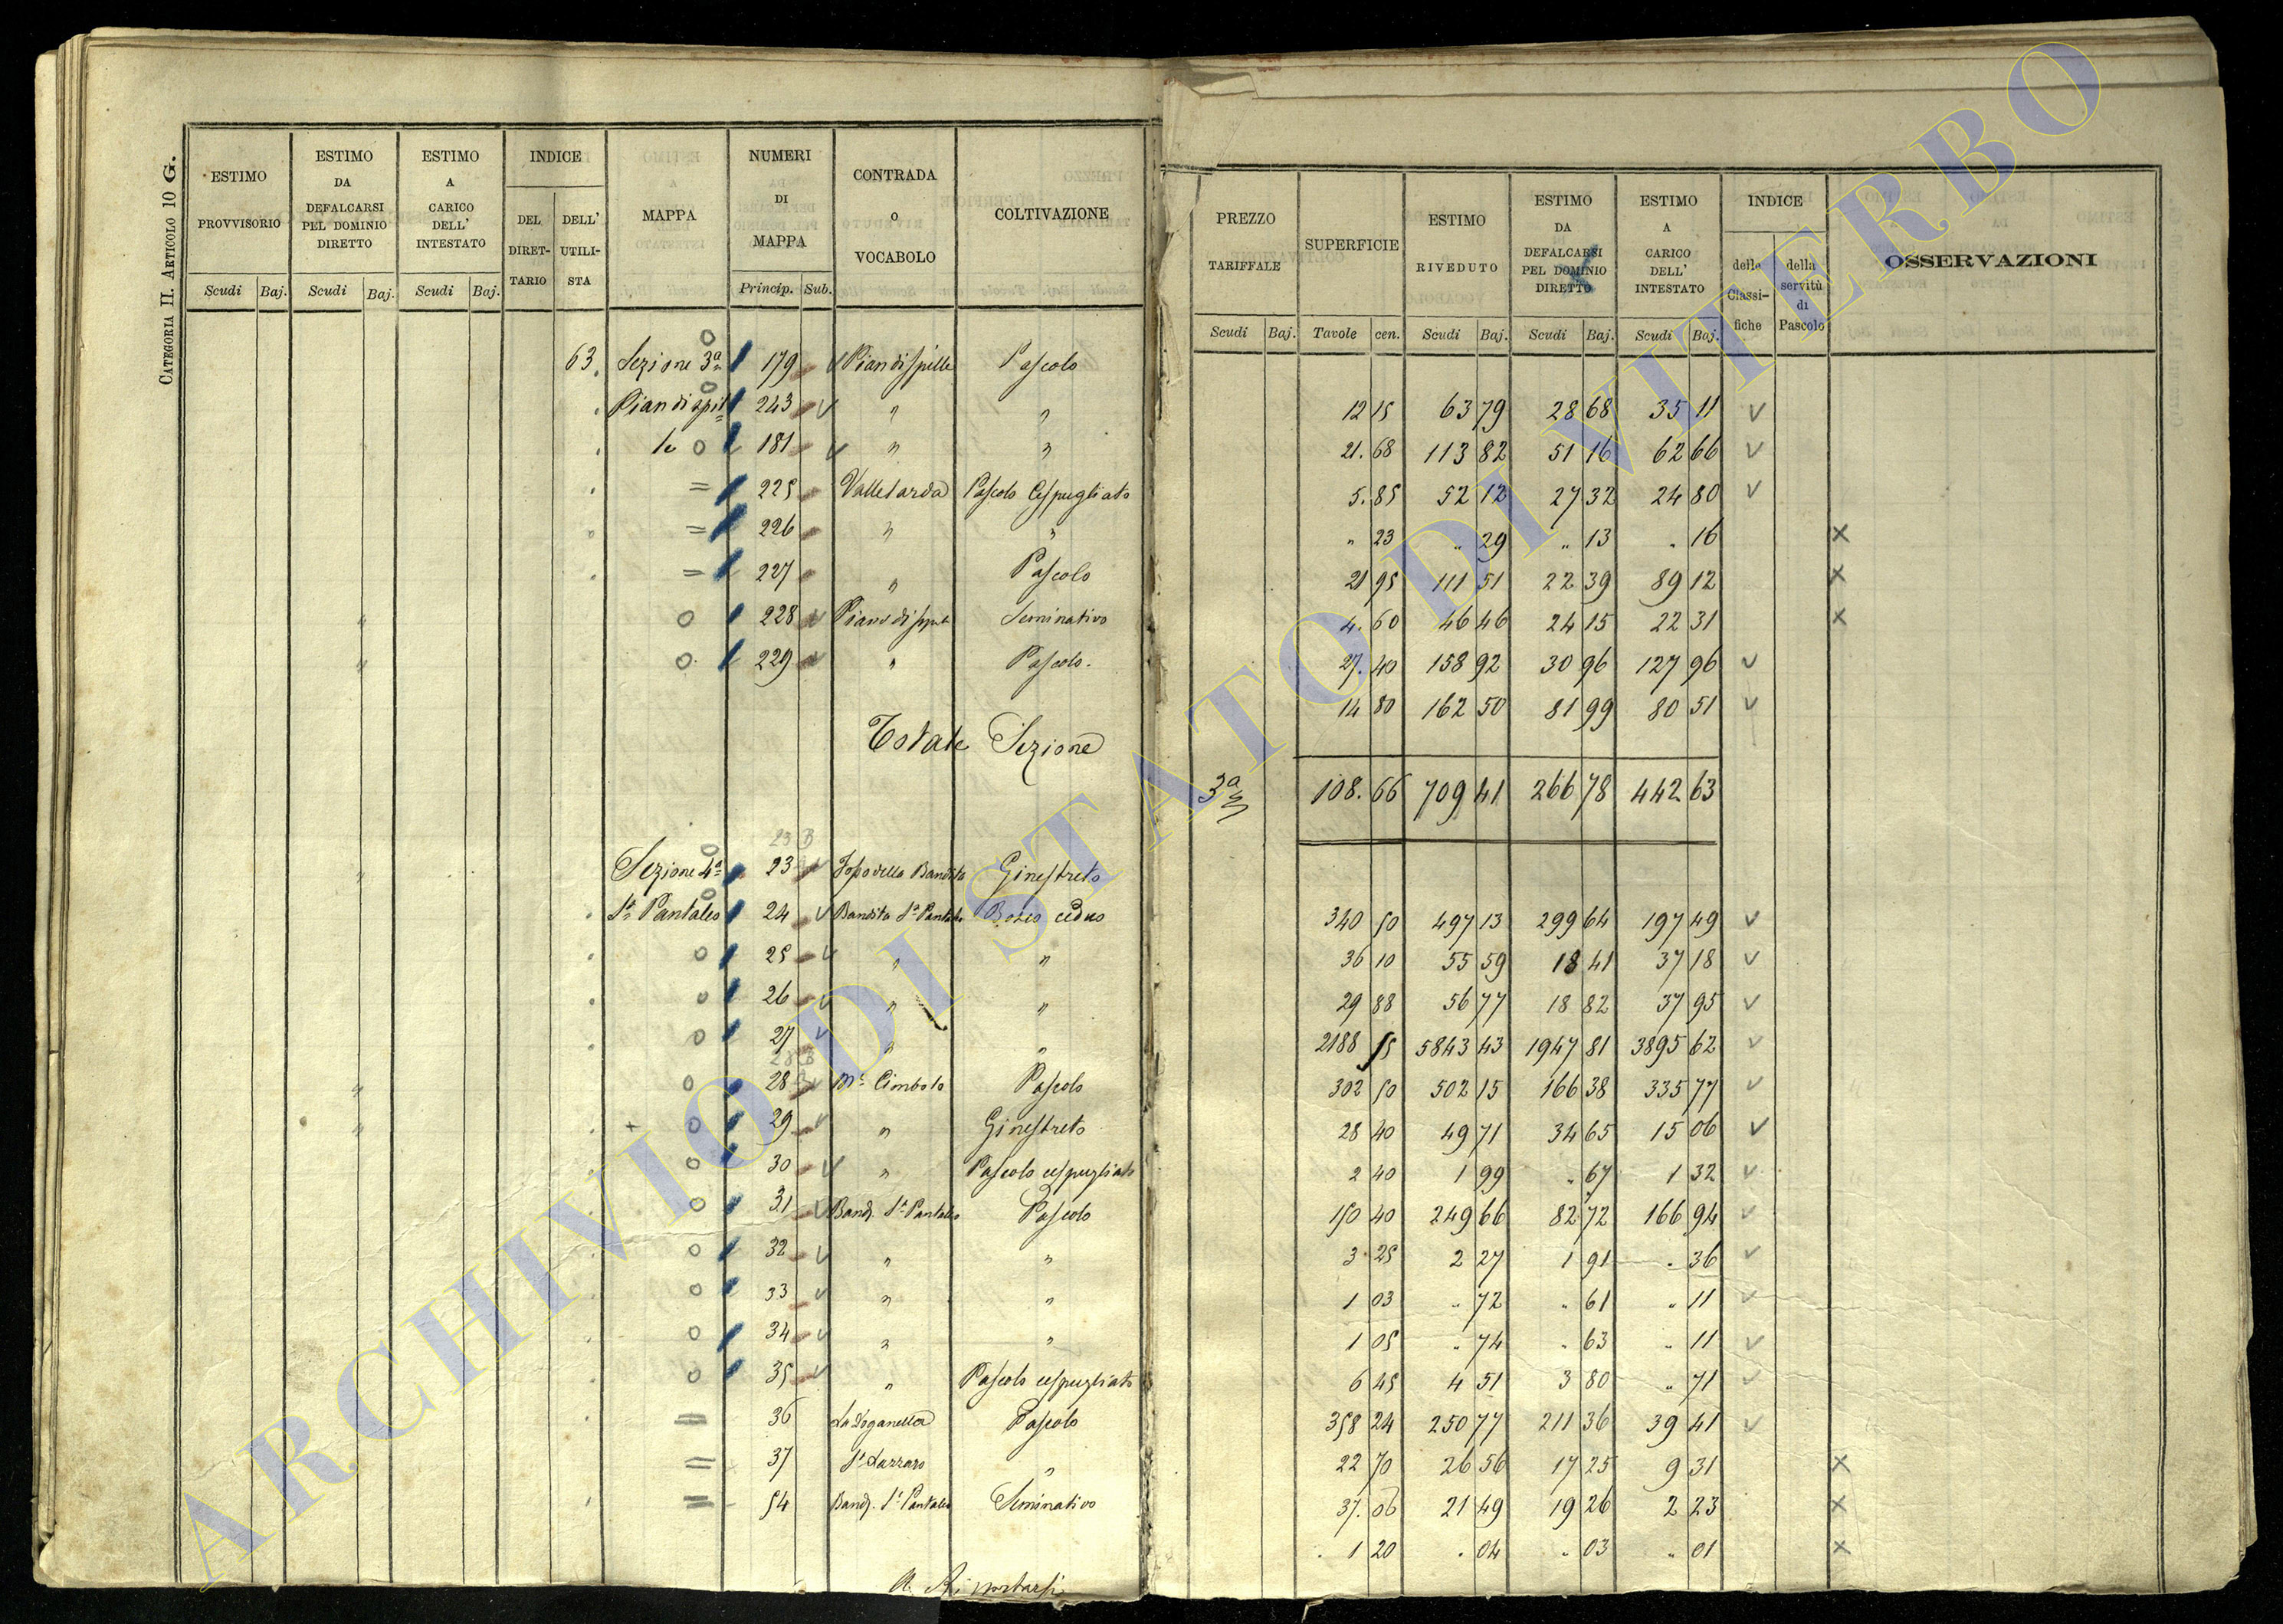 CATEGORIA II. ARTICOLO 10 G.
ESTIMO PROVVISORIO Scudi Baj.
ESTIMO DA DEFALCARSI PEL DOMINIO DIRETTO Scudi Baj.
ESTIMO A CARICO DELL' INTESTATO Scudi Baj.
INDICE DEL DIRETTARIO DELL' UTILISTA
MAPPA
NUMERI DI MAPPA Princip. Sub.
CONTRADA O VOCABOLO
COLTIVAZIONE
63. Sezione 3ª 179 Piandispille Pascolo
Piandispil= 243 " "
le 181 " "
= 225 Valletarda Pascolo Cespugliato
= 226 " "
= 227 " Pascolo
228 Seminativo
229 " Pascolo.
Totale Sezione
23 B
Sezione 4ª 23 Fosso della Bandita Ginestreto
S. Pantaleo 24 Bandita Sº Pantaleo Bosco ceduo
25 " "
26 " "
27 " "
28 B
28 Mte Cimbolo Pascolo
+ 29 " Ginestreto
30 " Pascolo cespugliato
31 Band. Sº Pantaleo Pascolo
32 " "
33 " "
34 " "
35 " Pascolo cespugliato
= 36 La Doganella Pascolo
= 37 Sº Lazzaro "
= 54 Band. Sº Pantaleo Seminativo
A Riportarsi
PREZZO TARIFFALE Scudi Baj.
SUPERFICIE Tavole cen.
ESTIMO RIVEDUTO Scudi Baj.
ESTIMO DA DEFALCARSI PEL DOMINIO DIRETTO Scudi Baj.
ESTIMO A CARICO DELL' INTESTATO Scudi Baj.
INDICE delle Classifiche della servitù di Pascolo
OSSERVAZIONI
12 15 63 79 28 68 35 11
21. 68 113 82 51 16 62 66
5. 85 52 12 27 32 24 80
" 23 " 29 " 13 " 16 ×
21 95 111 51 22 39 89 12 ×
4. 60 46 46 24 15 22 31 ×
27. 40 158 92 30 96 127 96
14 80 162 50 81 99 80 51
3ª 108. 66 709 41 266 78 442 63
340 50 497 13 299 64 197 49
36 10 55 59 18 41 37 18
29 88 56 77 18 82 37 95
2188 15 5843 43 1947 81 3895 62
302 50 502 15 166 38 335 77
28 40 49 71 34 65 15 06
2 40 1 99 " 67 1 32
150 40 249 66 82 72 166 94
3 25 2 27 1 91 " 36
1 03 " 72 " 61 " 11
1 05 " 74 " 63 " 11
6 45 4 51 3 80 " 71
358 24 250 77 211 36 39 41
22 70 26 56 17 25 9 31 ×
37. 06 21 49 19 26 2 23 ×
1 20 " 04 " 03 " 01 ×
ARCHIVIO DI STATO DI VITERBO